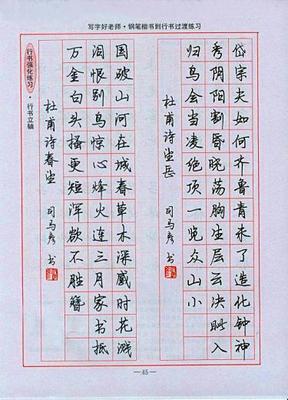 写字好老师·钢笔楷书到行书过渡练习
岱宗夫如何齐鲁青未了造化钟神
秀阴阳割昏晓荡胸生层云决眦入
归鸟会当凌绝顶一览众山小
杜甫诗望岳 司马彦书
国破山河在城春草木深感时花溅
泪恨别鸟惊心烽火连三月家书抵
万金白头搔更短浑欲不胜簪
杜甫诗春望 司马彦书
行书强化练习·行书立轴
—45—